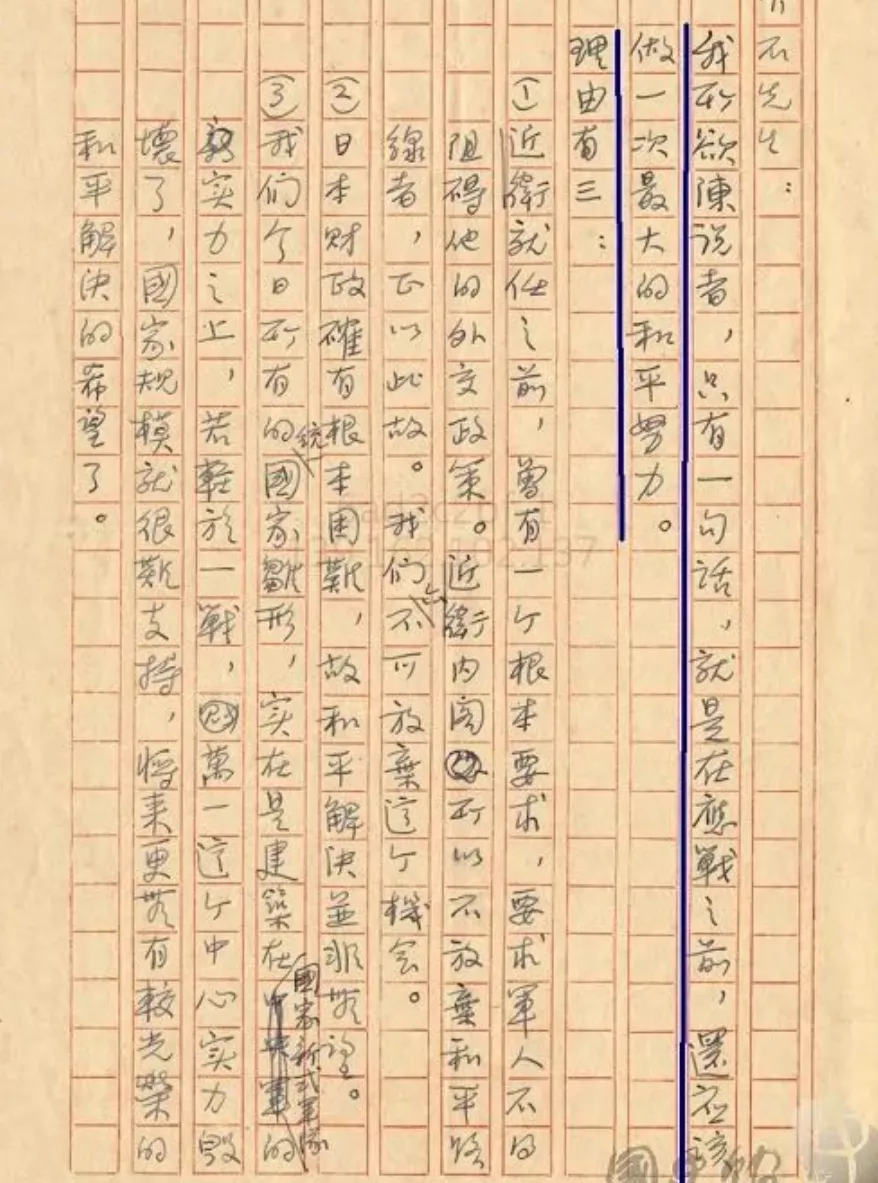 介石先生：
我所欲陳说者，只有一句话，就是在應戰之前，還应該
做一次最大的和平努力。
理由有三：
①近衛就任之前，曾有一个根本要求，要求軍人不得
阻碍他的外交政策。近衛内阁所以不放棄和平路
線者，正以此故。我们亦不可放棄這个機会。
②日本财政確有根本困難，故和平解決並非無望。
③我们今日所有的統一國家雛形，实在是建築在國家新式軍隊的
新实力之上，若輕於一戰，萬一這个中心实力毁
壞了，國家規模就很難支持，將来更無有較光榮的
和平解決的希望了。